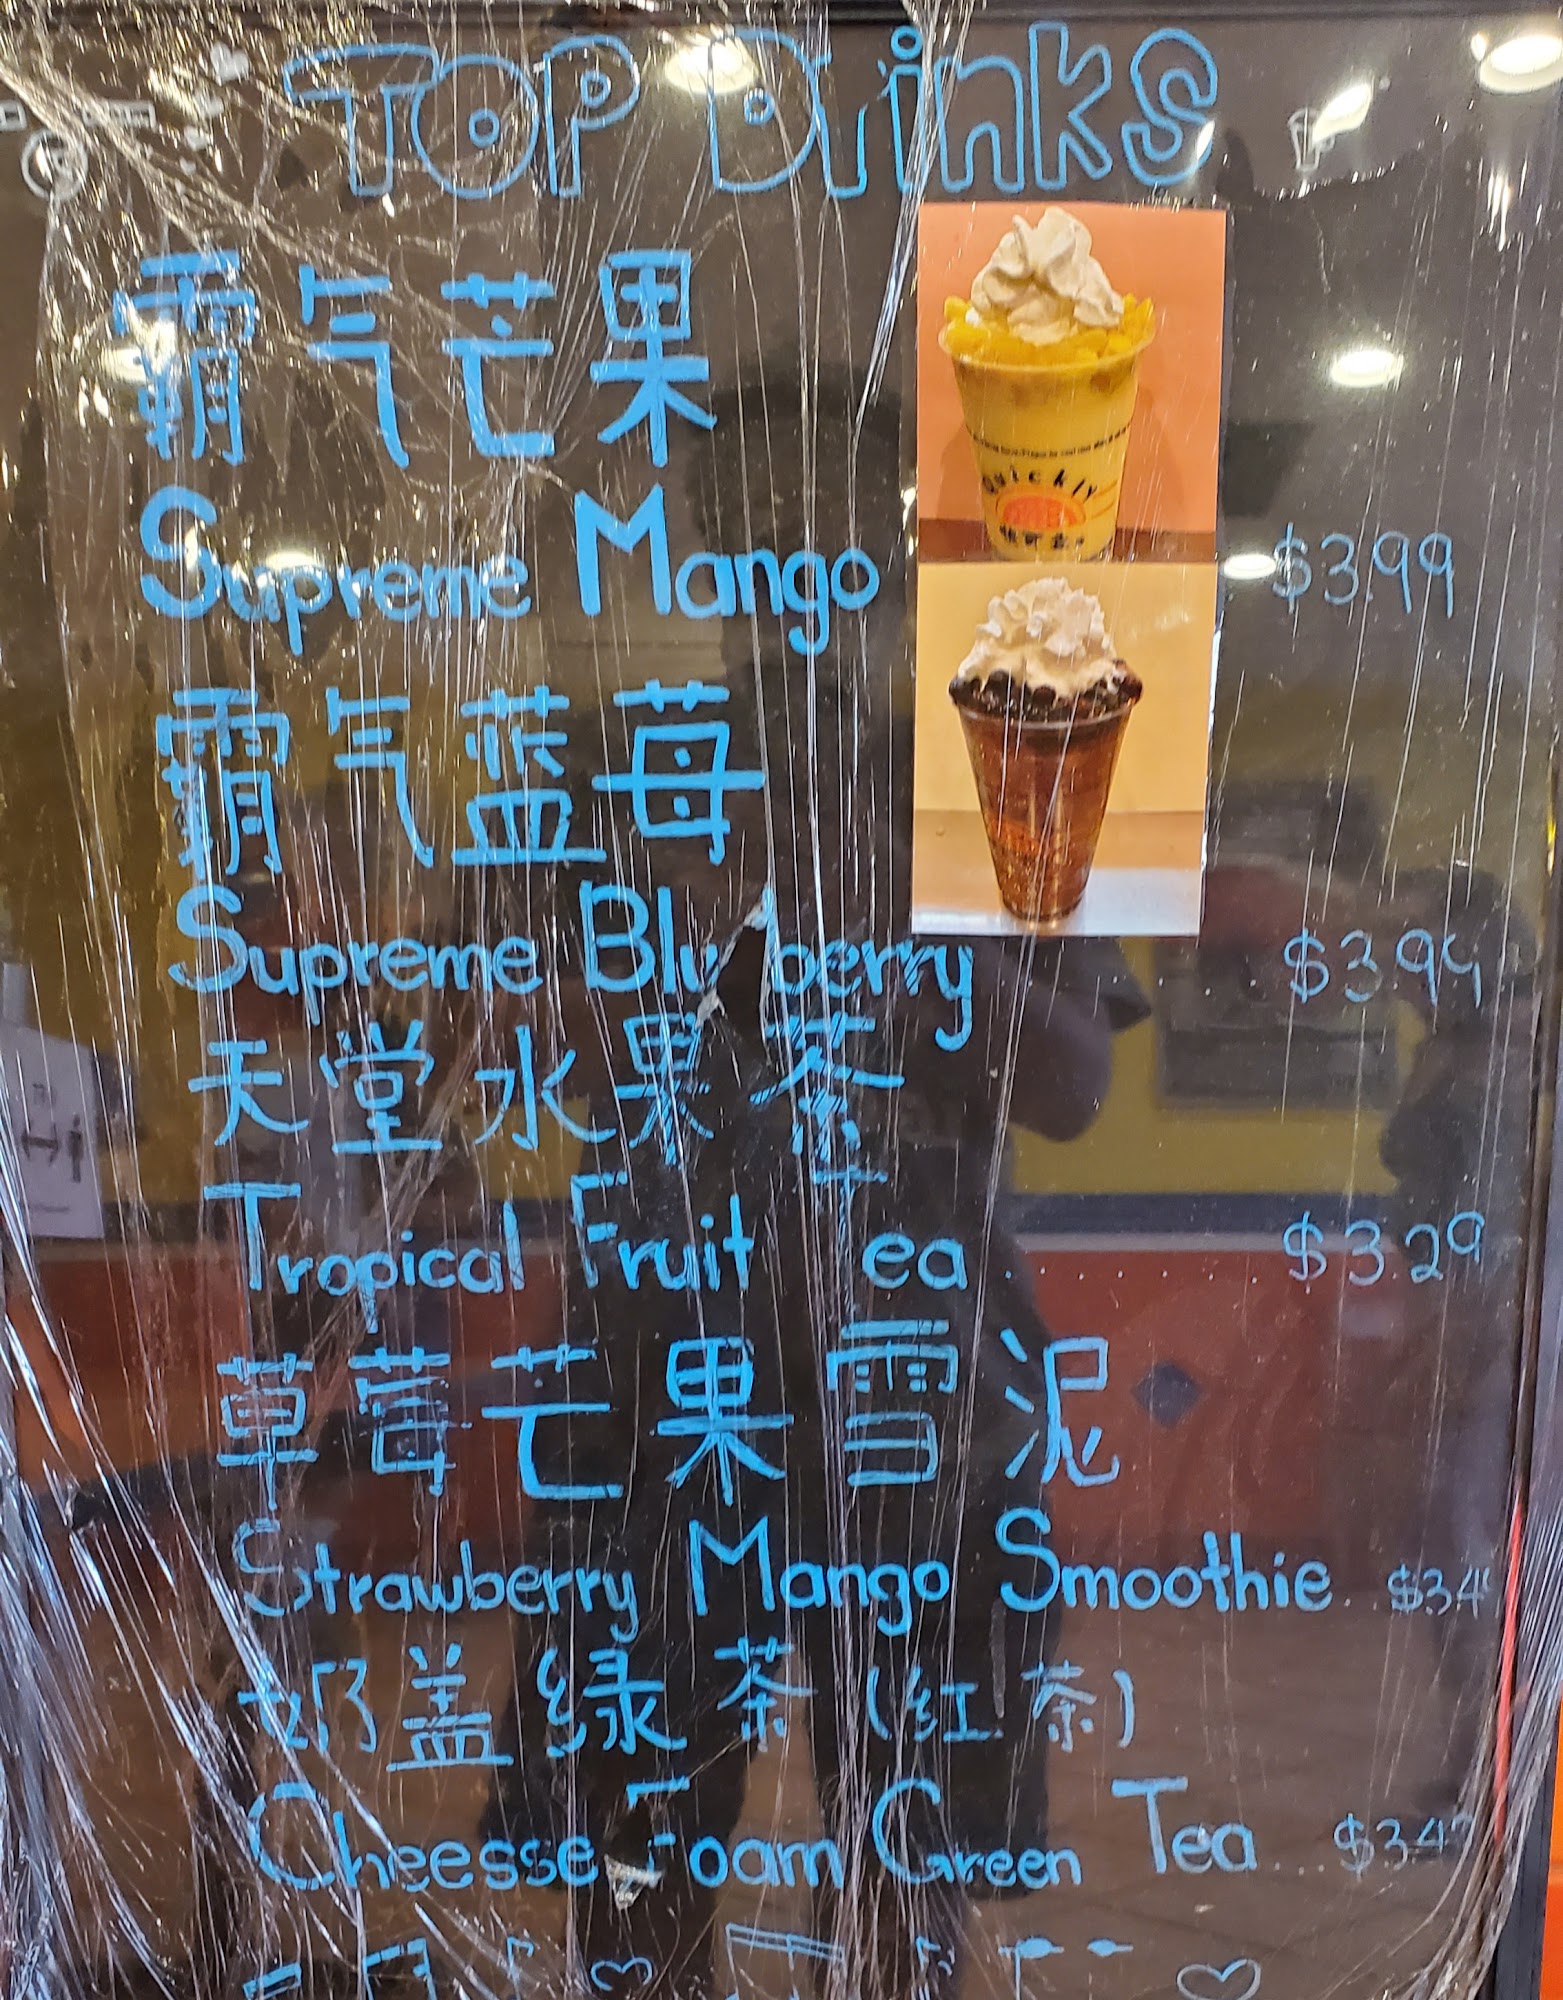 TOP Drinks
霸气芒果
Quickly
Supreme Mango $3.99
霸气蓝莓
Supreme Blueberry ........ $3.99
天堂水果茶
Tropical Fruit Tea ........ $3.29
草莓芒果雪泥
Strawberry Mango Smoothie..
奶盖绿茶(红茶)
Cheesse Foam Green Tea...